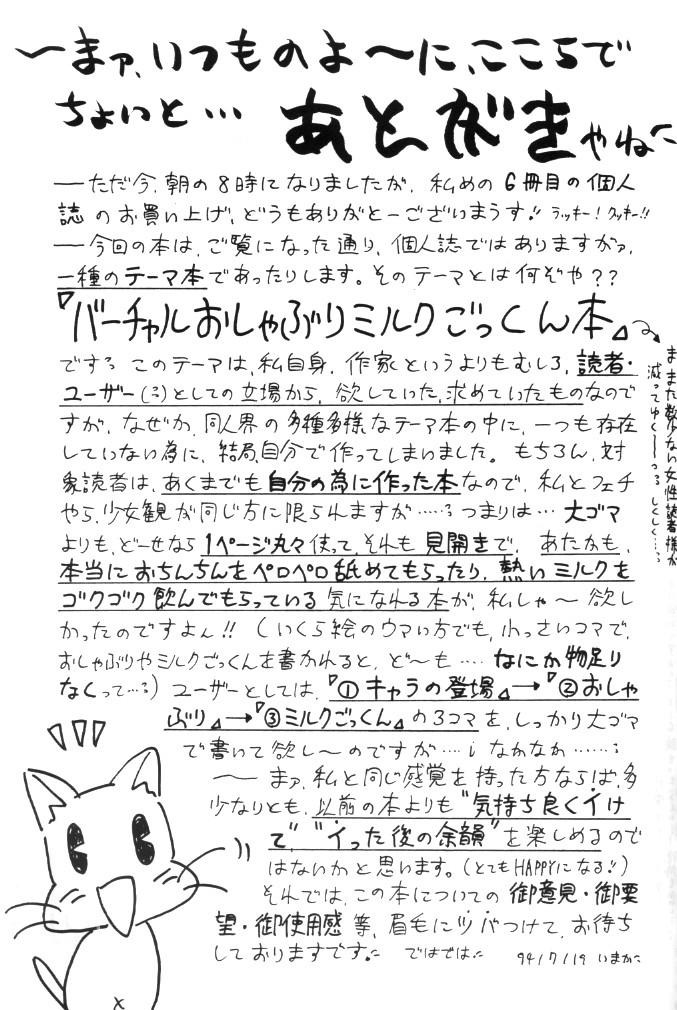 〜まァ、いつものよ〜に、ここらで
ちょいと… あとがきやね
──ただ今、朝の8時になりましたが、私めの6冊目の個人
誌のお買い上げ、どうもありがとーございまうす!! ラッキー！クッキー!!
──今回の本は、ご覧になった通り、個人誌ではありますがァ、
一種のテーマ本であったりします。そのテーマとは何ぞや？？
『バーチャルおしゃぶりミルクごっくん本』
ますます数少ない女性読者様が
減ってゆく──つつ しくしく…
です。このテーマは、私自身、作家というよりもむしろ、読者・
ユーザー(?)としての立場から、欲していた、求めていたものなので
すが、なぜか、同人界の多種多様なテーマ本の中に、一つも存在
していない為に、結局、自分で作ってしまいました。もちろん、対
象読者は、あくまでも自分の為に作った本なので、私とフェチ
やら、少女観が同じ方に限られますが……。つまりは…大ゴマ
よりも、どーせなら1ページ丸々使って、それも見開きで、あたかも、
本当におちんちんをペロペロ舐めてもらったり、熱いミルクを
ゴクゴク飲んでもらっている気になれる本が、私しゃ〜欲し
かったのですよん!!（いくら絵のウマい方でも、小っさいコマで、
おしゃぶりやミルクごっくんを書かれると、ど〜も……なにか物足り
なくって…）ユーザーとしては、『①キャラの登場』→『②おしゃ
ぶり』→『③ミルクごっくん』の3コマを、しっかり大ゴマ
で書いて欲し〜のですが…、なかなか……
── まァ、私と同じ感覚を持った方ならば、多
少なりとも、以前の本よりも“気持ち良くイけ
て”、“イった後の余韻”を楽しめるので
はないかと思います。（とてもHAPPYになる!!）
それでは、この本についての御意見・御要
望・御使用感等、眉毛にツバつけて、お待ち
しておりますです。 ではでは 94/7/19